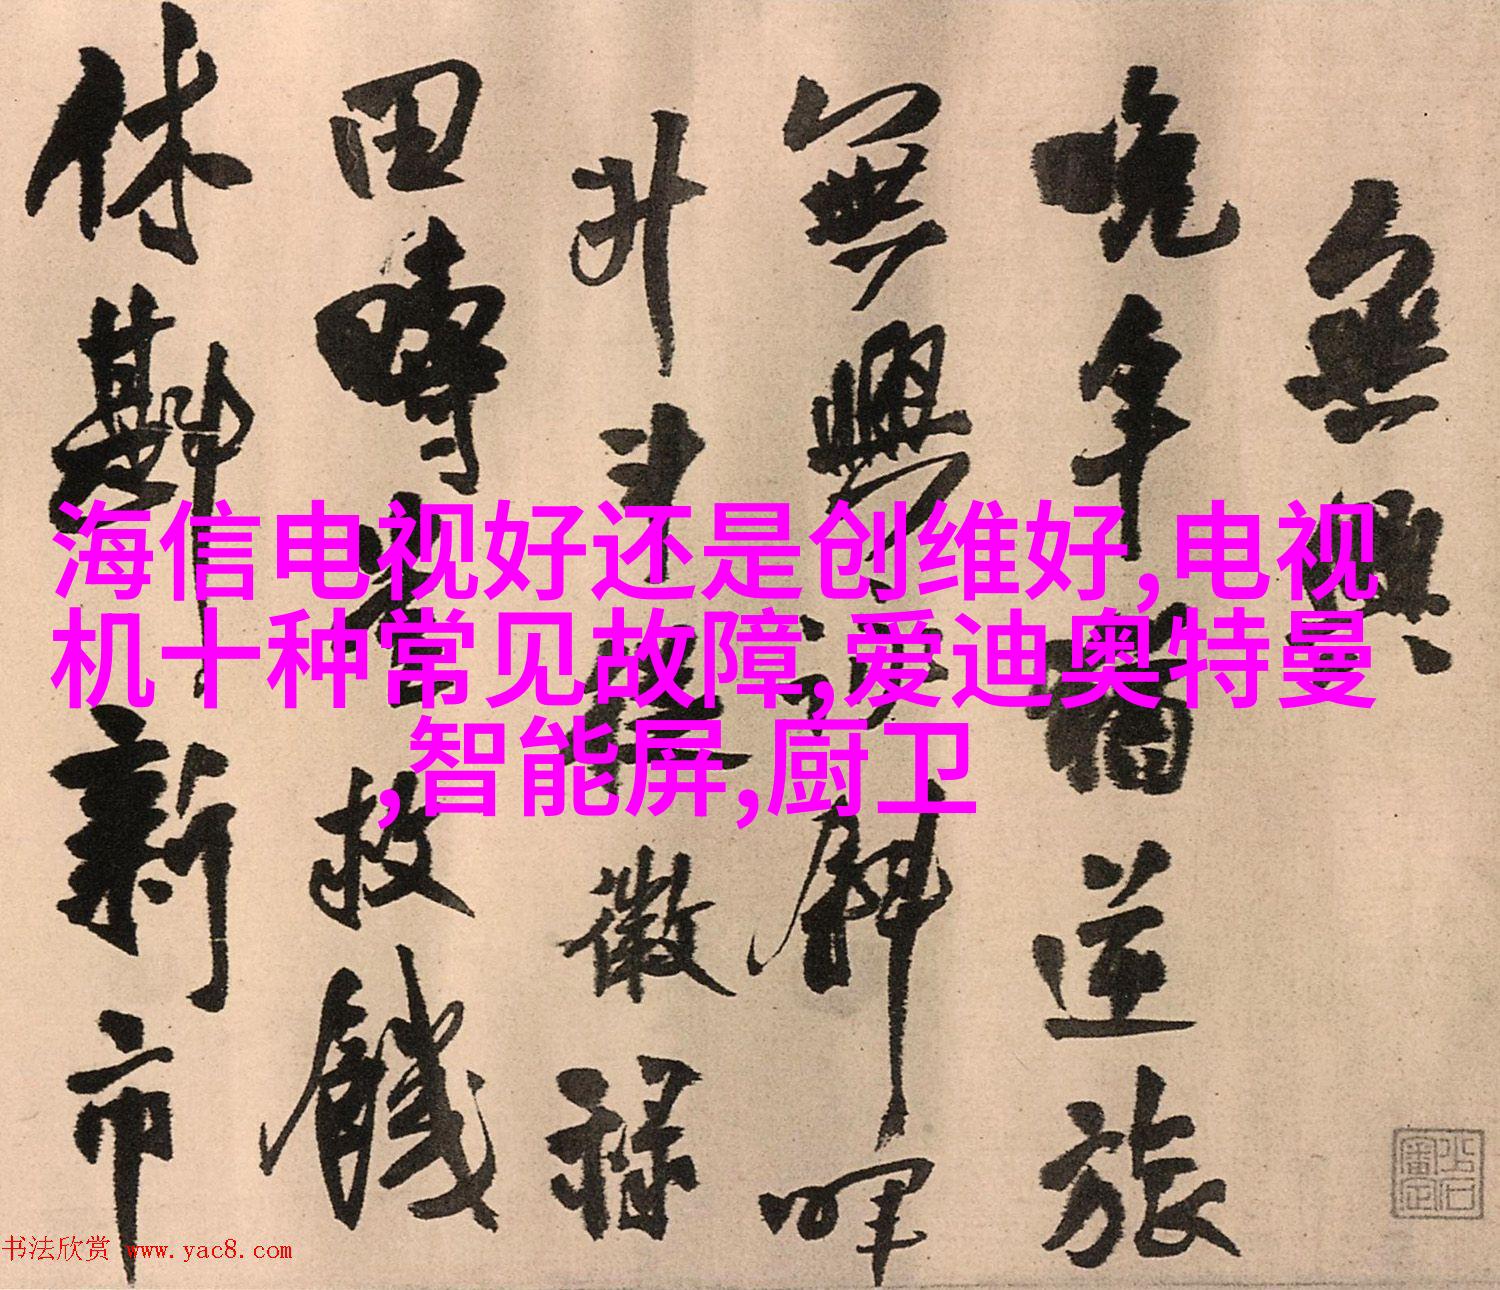 海信电视好还是创维好,电视
机十种常见故障,爱迪奥特曼
,智能屏,厨卫
無興
晚年猶逆旅
興斜暉
升斗徵祿
田疇救餞
休斟新市
书法欣赏 www.yac8.com